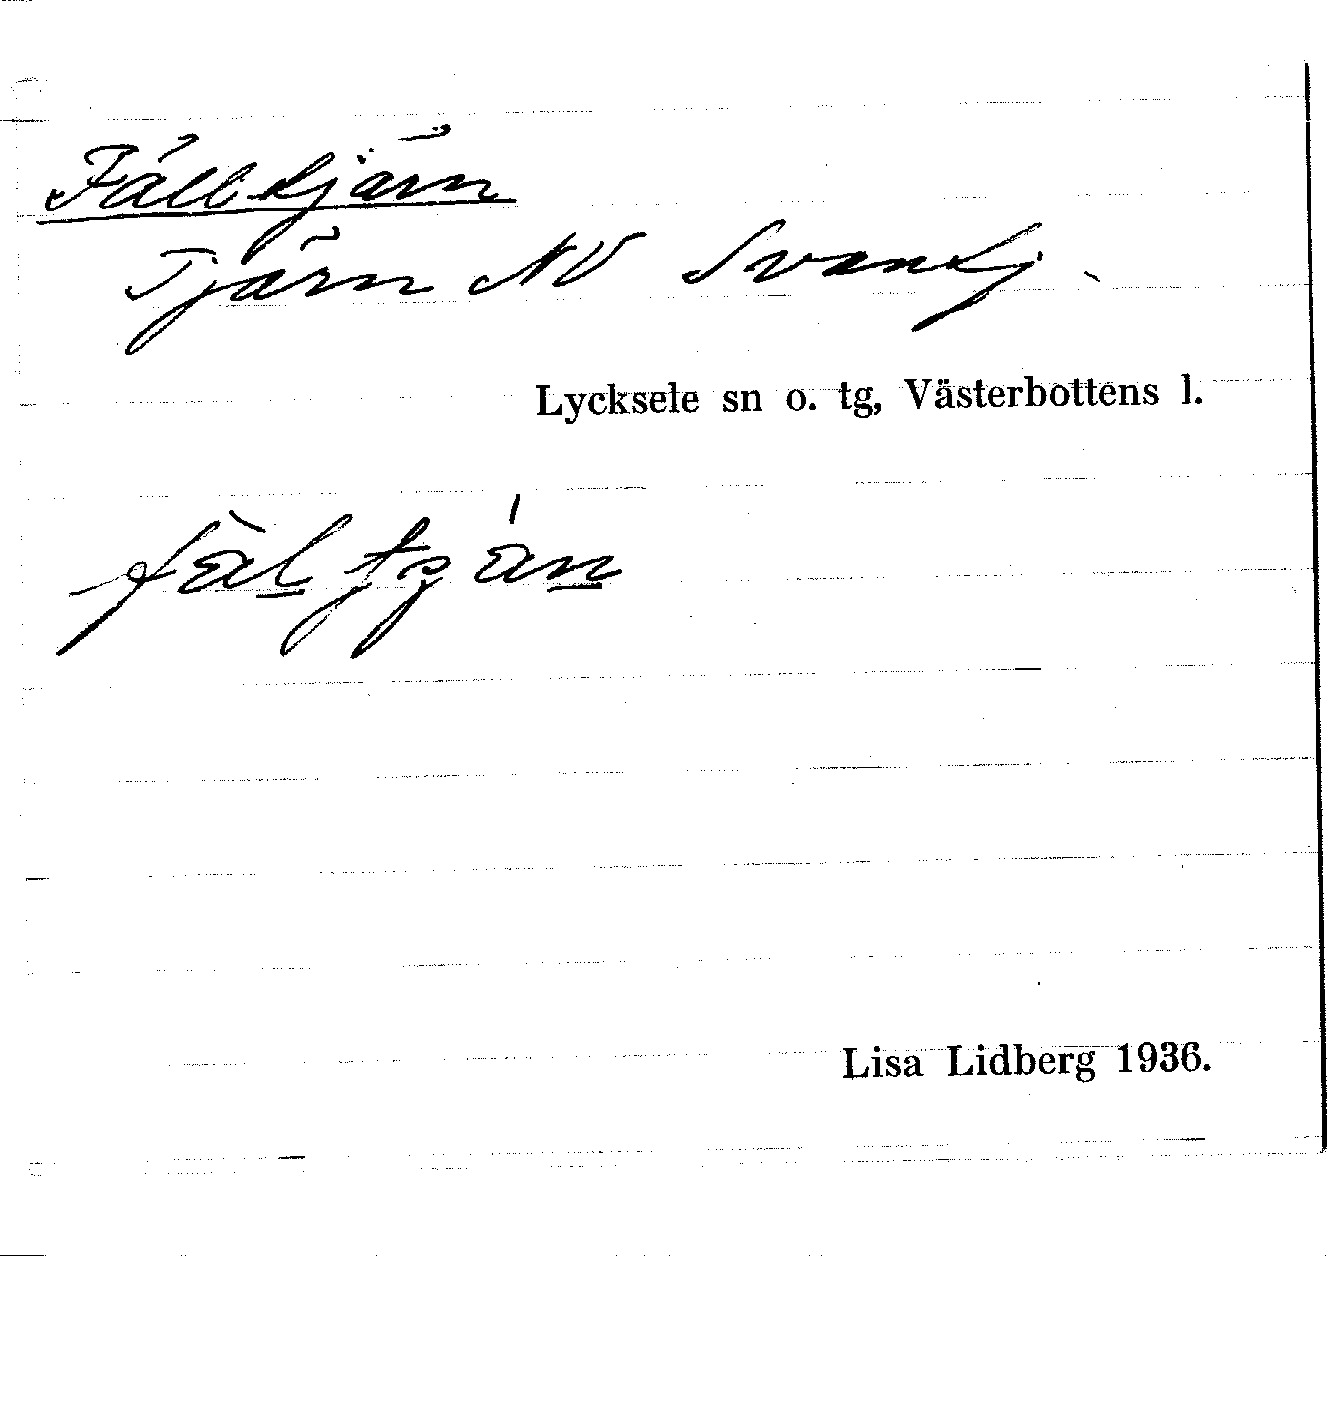 Fälltjärn
Tjärn NV Svantj.
Lycksele sn o. tg, Västerbottens l.
Lisa Lidberg 1936.